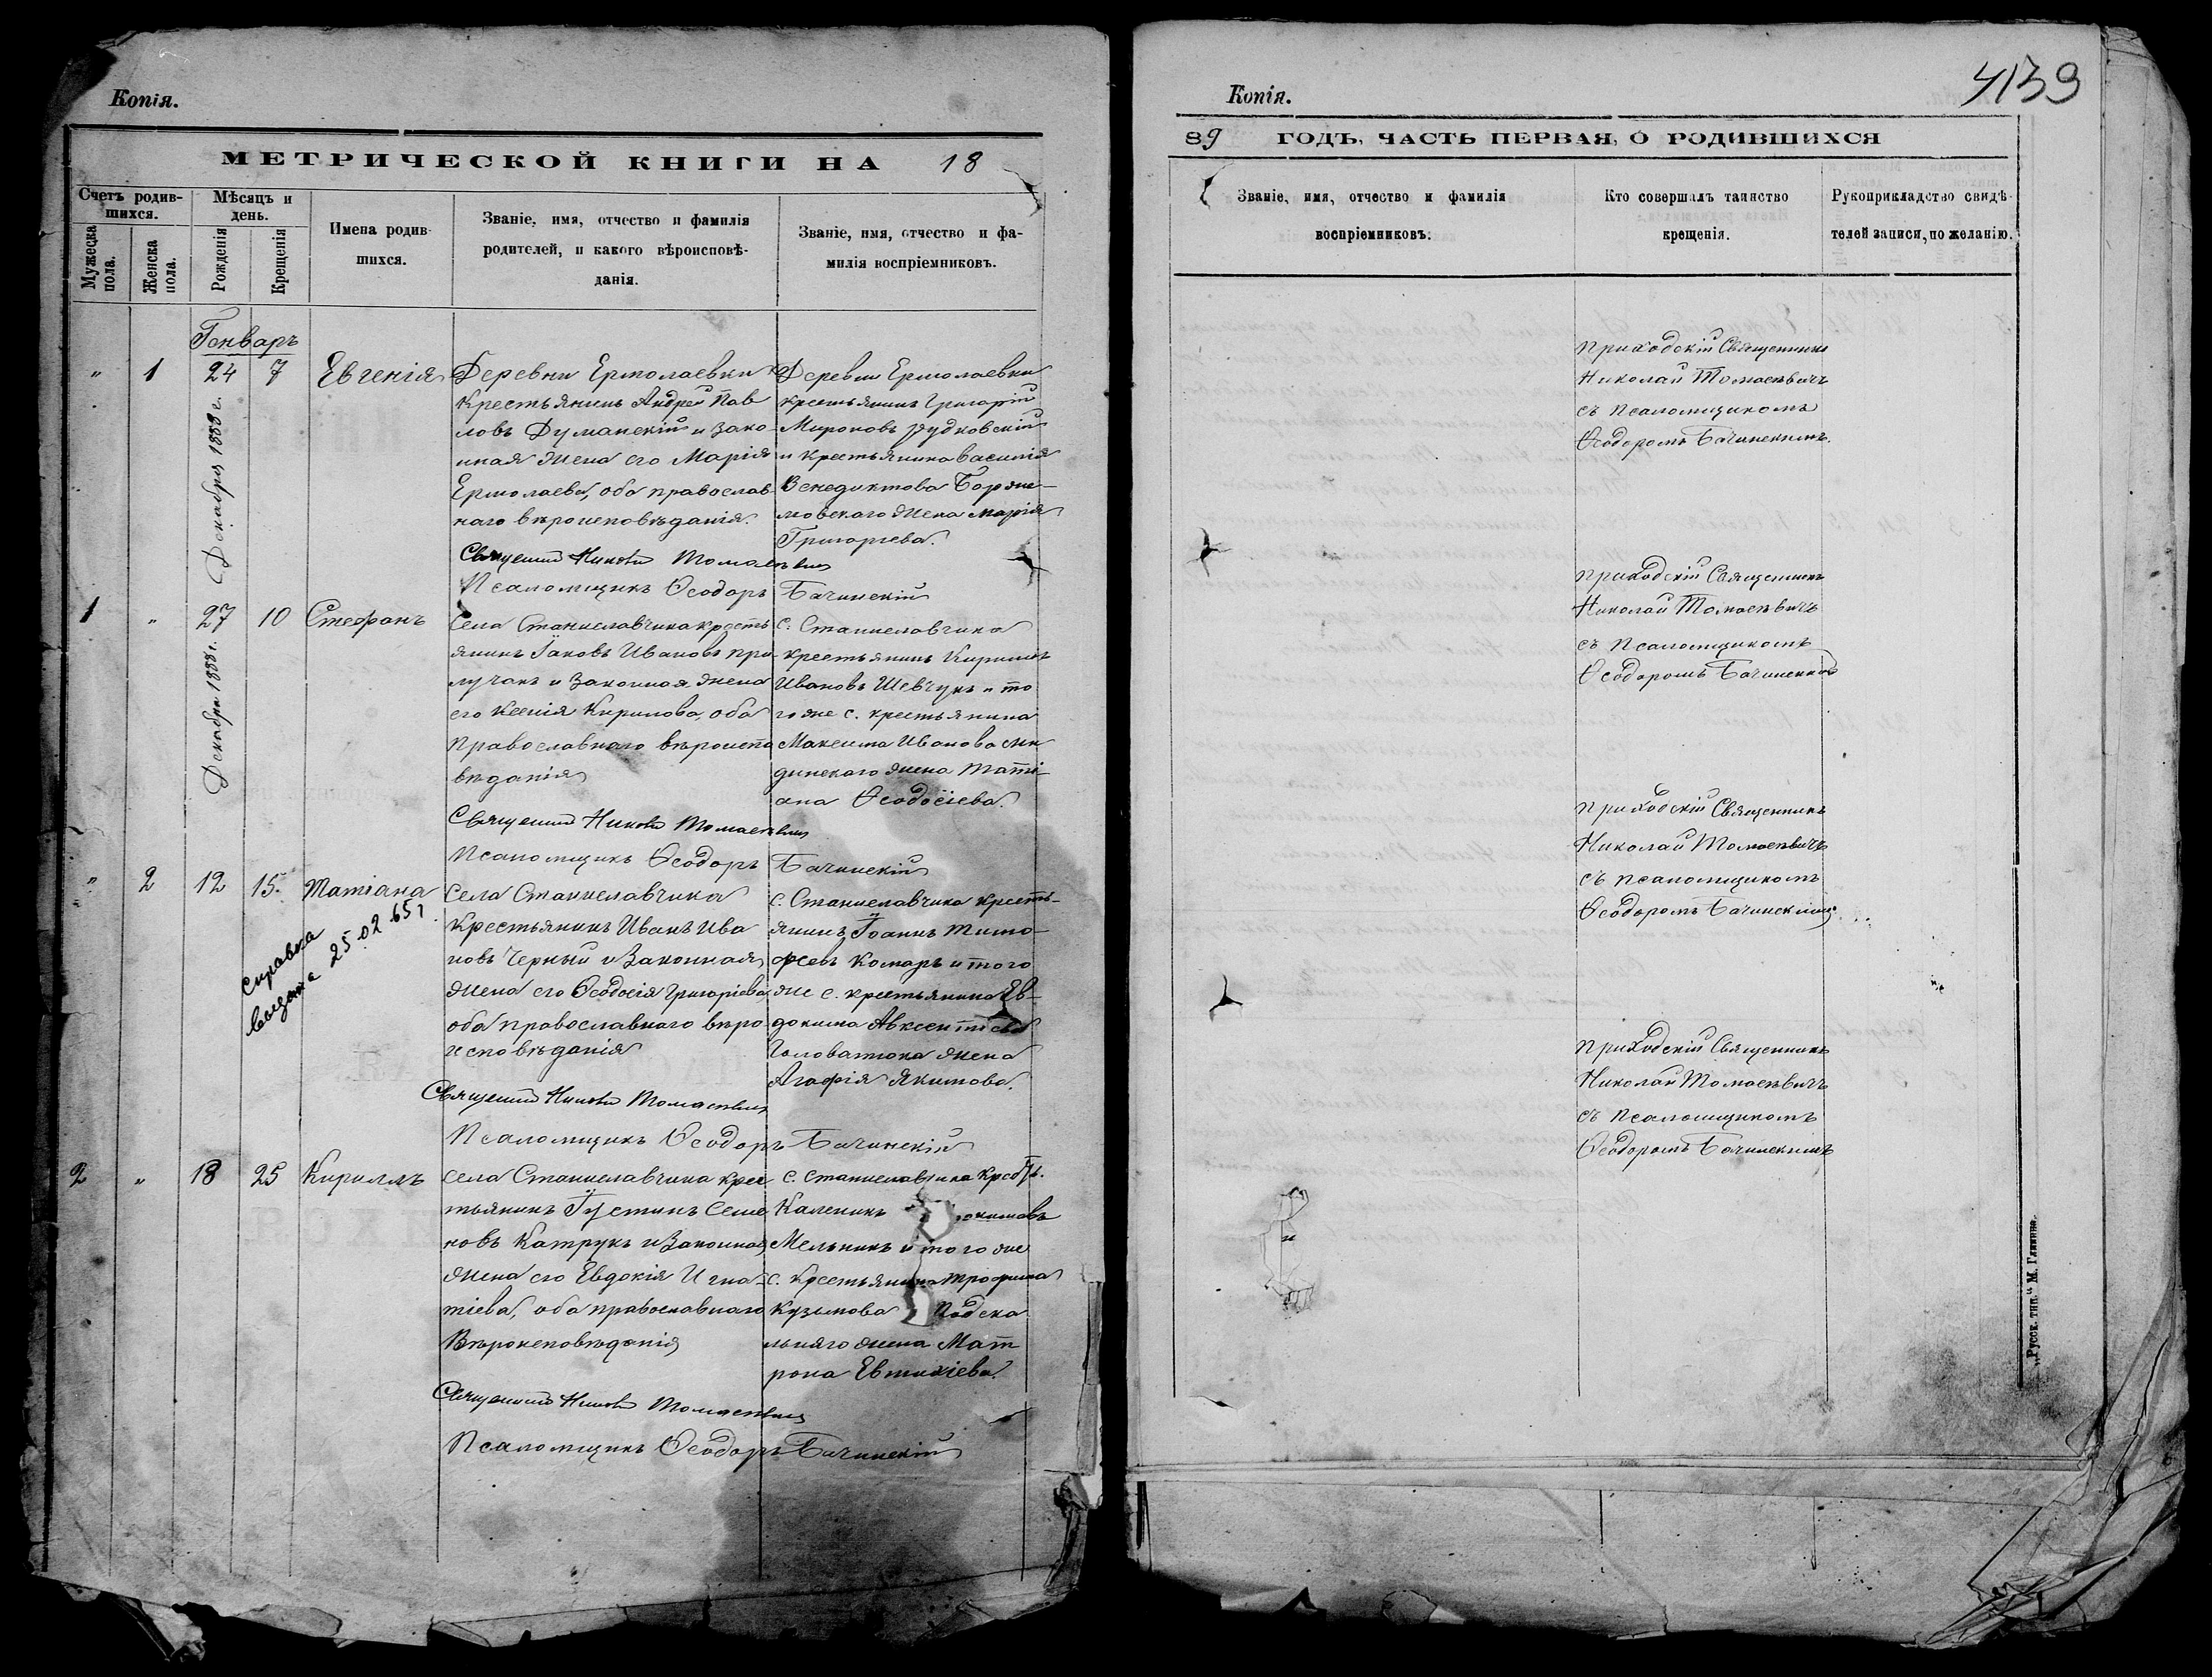 Копія.
МЕТРИЧЕСКОЙ КНИГИ НА 18
Счетъ родившихся.
Мужеска пола.
Женска пола.
Мѣсяцъ и день.
Рожденія
Крещенія
Имена родившихся.
Званіе, имя, отчество и фамилія
родителей, и какого вѣроисповѣ-
данія.
Званіе, имя, отчество и фа-
милія воспріемниковъ.
Генварь
" 1 24 7 Евгенія
Декабря 1888 г.
Деревни Ермолаевки
крестьянинъ Андрей Пав
ловъ Думанскій и зако-
нная жена его Марія
Ермолаева, оба православ-
наго вѣроисповѣданія.
Деревни Ермолаевки
крестьянинъ Григорій
Мироновъ Рудковскій
и крестьянина Василія
Венедиктова Борже-
мовскаго жена Марія
Григорьева.
Священникъ Николай Томасевичъ
Псаломщикъ Ѳеодоръ Бачинскій
1 " 27 10 Стефанъ
Декабря 1888 г.
Села Станиславчика кресть
янинъ Іаковъ Ивановъ При-
лучанъ и законная жена
его Ксенія Кирилова, оба
православнаго вѣроиспо
вѣданія
с. Станиславчика
крестьянинъ Кириллъ
Ивановъ Шевчукъ и то
го же с. крестьянина
Максима Иванова
жена Таті-
ана Ѳеодосіева.
Священникъ Николай Томасевичъ
Псаломщикъ Ѳеодоръ Бачинскій
" 2 12 15. Татіана
справка
выдана 25.02.65 г.
Села Станиславчика
крестьянинъ Иванъ Ива
новъ Черный и законная
жена его Ѳеодосія Григоріева
оба православнаго вѣро
исповѣданія
с. Станиславчика кресть-
янинъ Іоаннъ Тимо-
феевъ Комаръ и того
же с. крестьянина Ев-
докима Авксентіева
Головатюка жена
Агафія Якимова.
Священникъ Николай Томасевичъ
Псаломщикъ Ѳеодоръ Бачинскій
2 " 18 25 Кириллъ
Села Станиславчика крес
тьянинъ Іустинъ Семе
новъ Катрукъ и законная
жена его Евдокія Игна-
тіева, оба православнаго
вѣроисповѣданія
с. Станиславчика крест.
Каленикъ
Мельникъ и того же
с. крестьянина Трофима
Кузьмова Подска
льняго жена Мат
рона Евтихіева.
Священникъ Николай Томасевичъ
Псаломщикъ Ѳеодоръ Бачинскій
Копія.
4139
89 ГОДЪ, ЧАСТЬ ПЕРВАЯ, О РОДИВШИХСЯ
Званіе, имя, отчество и фамилія
воспріемниковъ.
Кто совершалъ таинство
крещенія.
Рукоприкладство свидѣ-
телей записи, по желанію.
Приходскій Священникъ
Николай Томасевичъ
съ псаломщикомъ
Ѳеодоромъ Бачинскимъ.
Приходскій Священникъ
Николай Томасевичъ
съ псаломщикомъ
Ѳеодоромъ Бачинскимъ
Приходскій Священникъ
Николай Томасевичъ
съ псаломщикомъ
Ѳеодоромъ Бачинскимъ
Приходскій Священникъ
Николай Томасевичъ
съ псаломщикомъ
Ѳеодоромъ Бачинскимъ
„Русск. тип." М. Глинна.